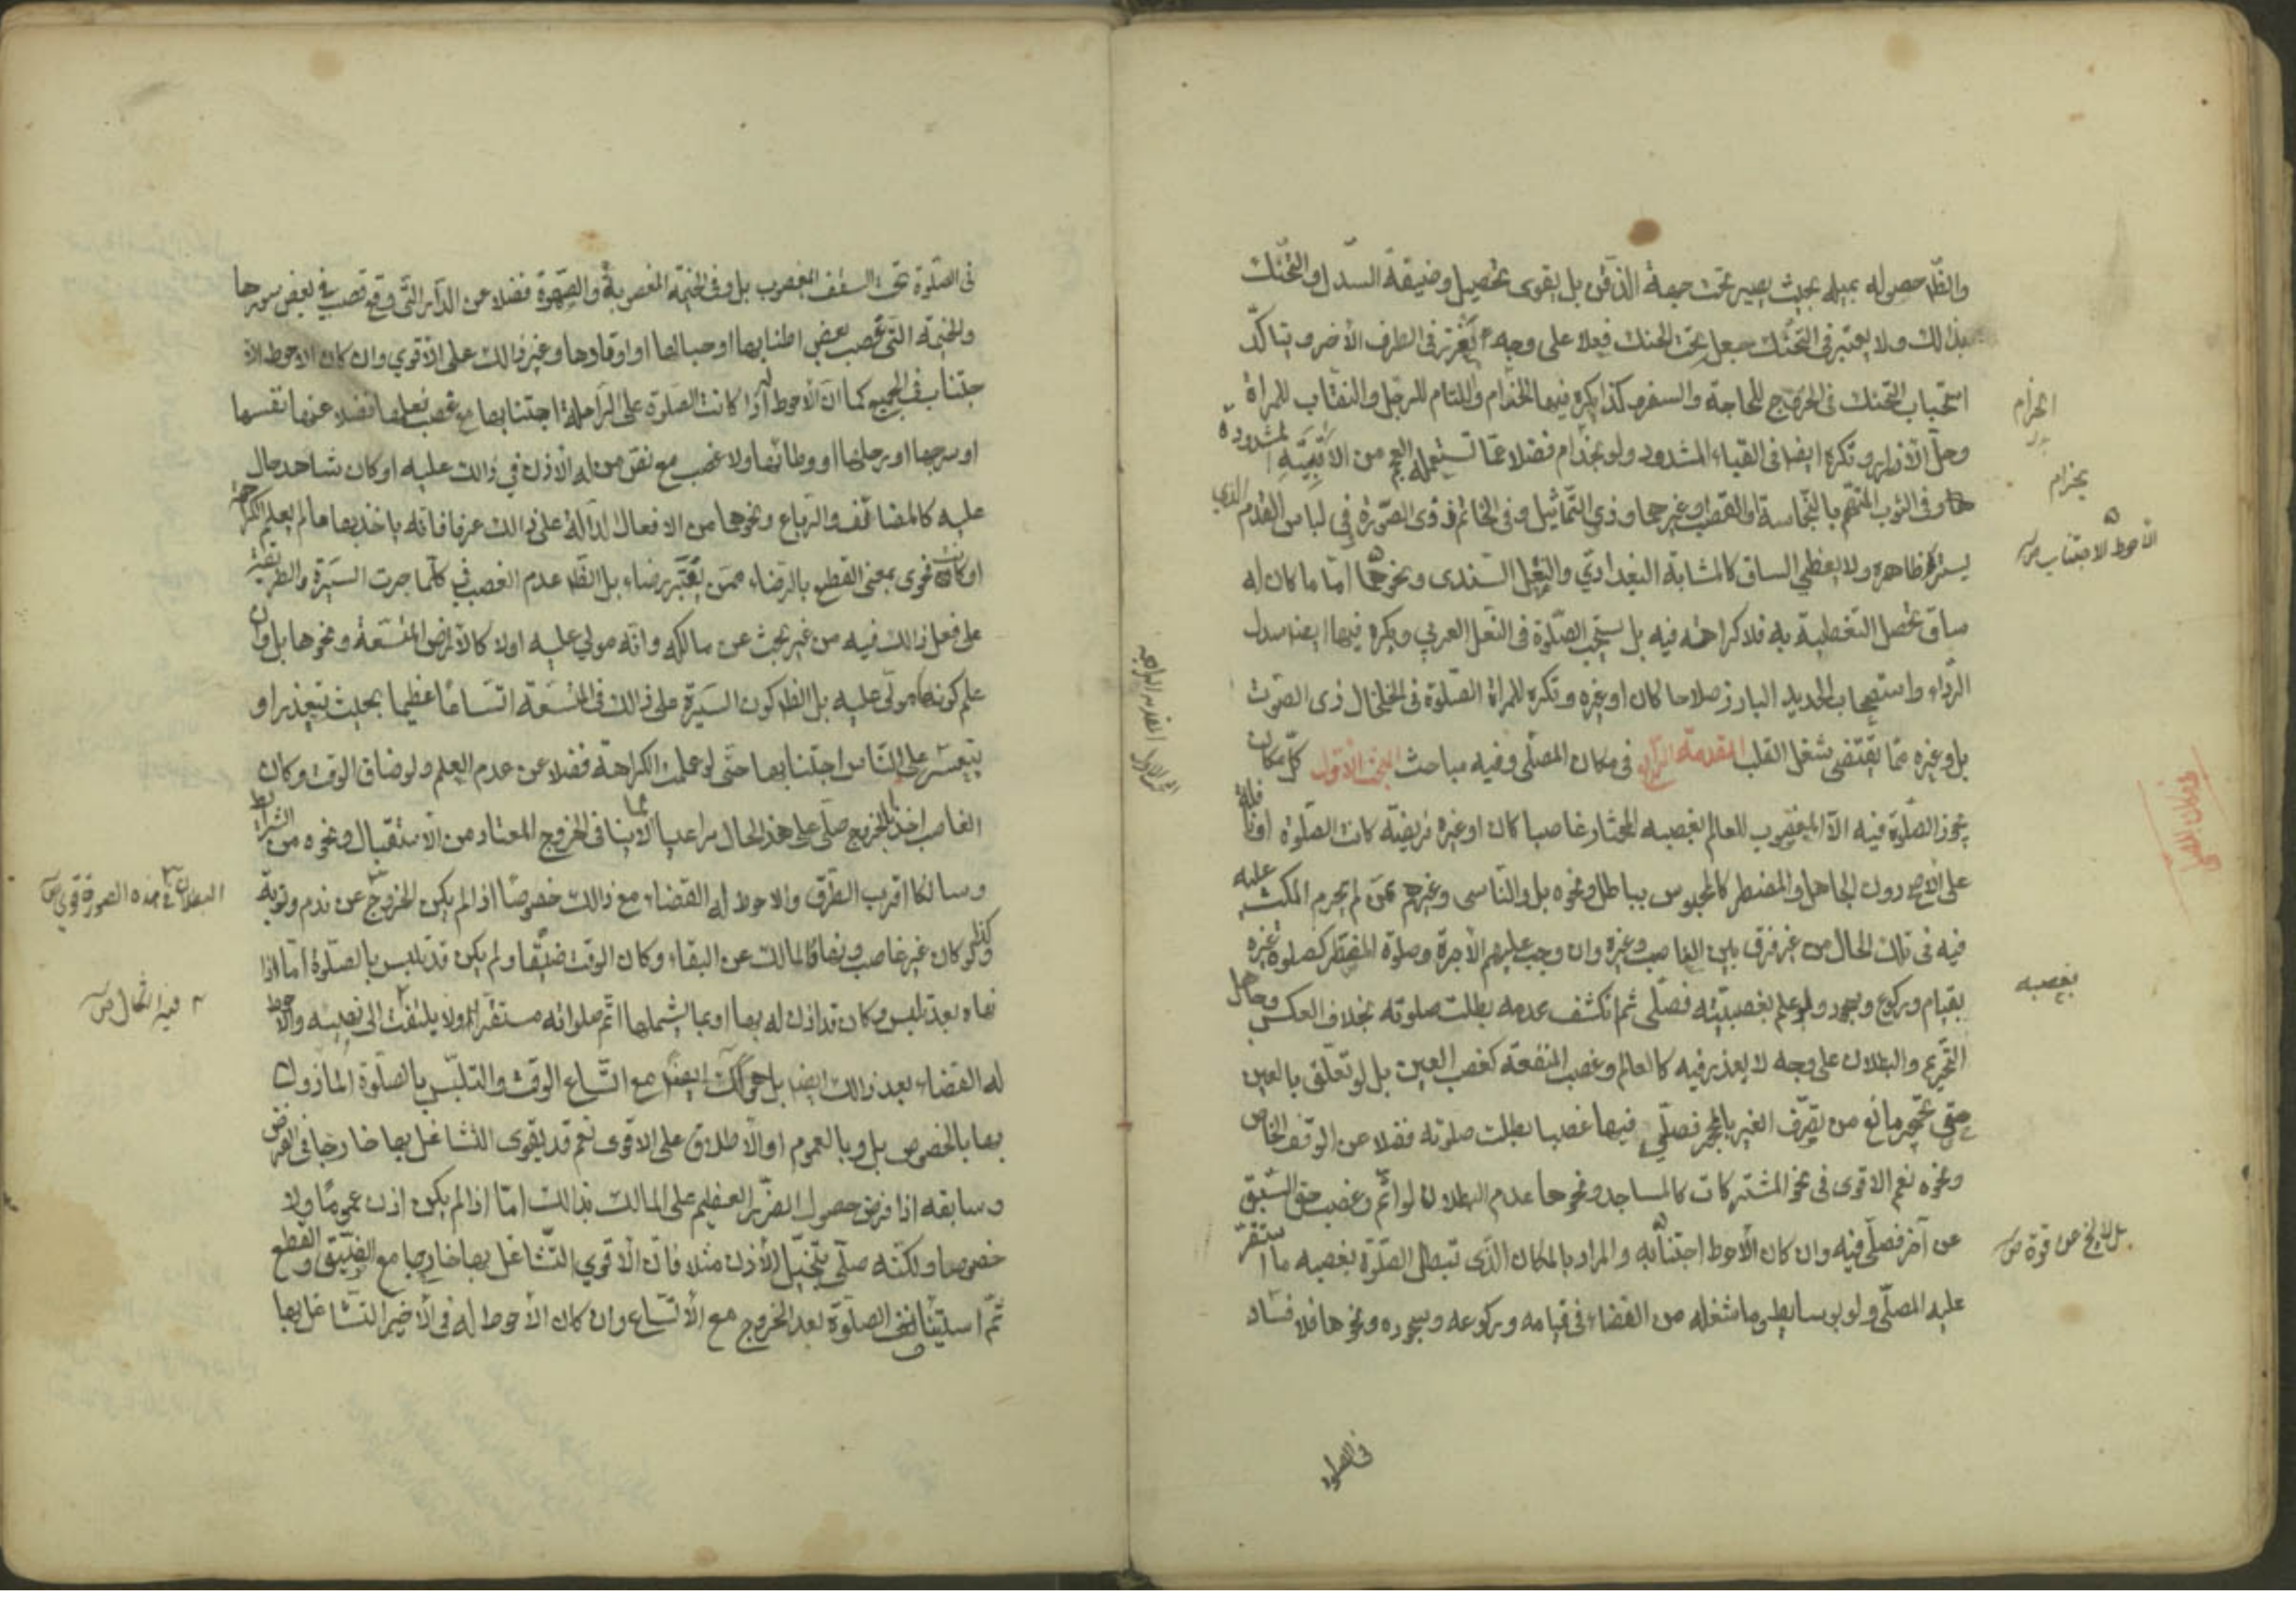 والظ حصوله بميله بحيث يصير تحت جهة الذقن بل يقوى تحصيل وضيفة السدل والتحنك
بذلك ولا يعتبر في التحنك جعل تحت الحنك فعلا على وجه يغرز في الطرف الأخر ويتاكد
استحباب التحنك في الخروج للحاجة والسفر كذا يكره فيها الخذام واللثام للرجل والنقاب للمراة
وحل الأزرار وتكره ايضا في القباء المشدود ولو بخذام فضلا عما تستعمله العجم من الأقبية المشدودة
وفي الثوب المتهم بالنجاسة او الغصب وغيرهما وذي التماثيل وفي الخاتم ذي الصورة في لباس القدم الذي
يستر ظاهره ولا يغطي الساق كالمشاية البغدادي والنعل السندى ونحوهما امّا ما كان له
ساق تحصل التغطية به فلا كراهة فيه بل يستحب الصلوة في النعل العربي ويكره فيها ايضا سدل
الرداء واستصحاب الحديد البارز سلاحا كان او غيره وتكره للمراة الصلوة في الخلخال ذى الصوت
بل وغيره مما يقتضى شغل القلب المقدمة في مكان المصلى وفيه مباحث الاول كل مكان
يجوز الصلوة فيه الا المغصوب للعالم بغصبه المختار غاصبا كان او غيره فريضة كانت الصلوة او نافلة
على الأصح دون الجاهل والمضطر كالمحبوس بباطل ونحوه بل والناسى وغيرهم ممن لم يحرم المكث عليه
فيه في تلك الحال من غير فرق بين الغاصب وغيره وان وجب عليهم الأجرة وصلوة المضطر كصلوة غيره
بقيام وركوع وسجود ولو علم بغصبيته فصلى ثم انكشف عدمه بطلت صلوته بخلاف العكس وجاهل
التحريم والبطلان على وجه لا يعذر فيه كالعالم وغصب المنفعة كغصب العين بل لو تعلق بالعين
حق تحجير مانع من تصرف الغير بالمحجر فصلى فيها غصبا بطلت صلوته فضلا عن الوقف الخاص
ونحوه نعم الاقوى في نحو المشتركات كالمساجد ونحوها عدم البطلان لو اثم وغصب حق السبق
عن آخر فصلى فيه وان كان الأحوط اجتنابه والمراد بالمكان الذي تبطل الصلوة بغصبه ما استقر
عليه المصلى ولو بوسايط وما شغله من الفضاء في قيامه وركوعه وسجوده ونحوها فلا فساد
بحزام
الأحوط الاجتناب
بغصبه
في الصلوة
في الصلوة تحت السقف المغصوب بل وفي الخيمة المغصوبة والصهوة فضلا عن الدار التي وقع غصب في بعض سورها
والخيمة التي غصب بعض اطنابها او حبالها او اوتادها وغير ذالك على الاقوي وان كان الاحوط الا
جتناب في الجميع كما ان الأحوط اذا كانت الصلوة على الراحلة اجتنابها مع غصب نعلها فضلا عنها نفسها
او سرجها او رحلها او وطائها ولا غصب مع نص من له الأذن في ذالك عليه او كان شاهد حال
عليه كالمضائف والرباع ونحوها من الافعال الدالة على ذالك عرفا فانه ياخذ بها ما لم يعلم الكراهة
او كانت فحوى بمعنى القطع بالرضاء ممن يعتبر رضاه بل الظ عدم الغصب في كلما جرت السيرة والطريقة
على فعل ذالك فيه من غير بحث عن مالكه وانه مولى عليه اولا كالاراض المتسعة ونحوها بل وان
علم كونه مولى عليه بل الظ كون السيرة على ذالك في المتسعة اتساعا عظيما بحيث يتعذر او
يتعسر على الناس اجتنابها حتى لو علمت الكراهة فضلا عن عدم العلم ولو ضاق الوقت وكان
الغاصب اخذ بالخروج صلى على هذ الحال مراعيا لما لا ينافى الخروج المعتاد من الاستقبال ونحوه من الشرائط
وسالكا اقرب الطرق والاحوط له القضاء مع ذالك خصوصا اذا لم يكن الخروج عن ندم وتوبة
وكذا لو كان غير غاصب ونهاه المالك عن البقاء وكان الوقت ضيقا ولم يكن قد تلبس بالصلوة اما اذا
نهاه بعد تلبس وكان قد اذن له بها او بما يشملها اتم صلوته مستقرا ولا يلتفت الى نهيه والاحوط
له القضاء بعد ذالك ايضا بل مع اتساع الوقت والتلبس بالصلوة المأذون
بها بالخصوص بل وبالعموم او الأطلاق على الاقوى نعم قد يقوى التشاغل بها خارجا في الفرض
وسابقه اذا فرض حصول الضرر العظيم على المالك بذالك امّا اذا لم يكن اذن عموما ولا
خصوصا ولكنه صلى بتخيل الأذن مثلا فان الأقوي التشاغل بها خارجا مع الضيق والقطع
ثم استيناف الصلوة بعد الخروج مع الأتساع وان كان الأحوط له في الأخير التشاغل بها
البطلان في هذه الصورة قوي
فيه اشكال